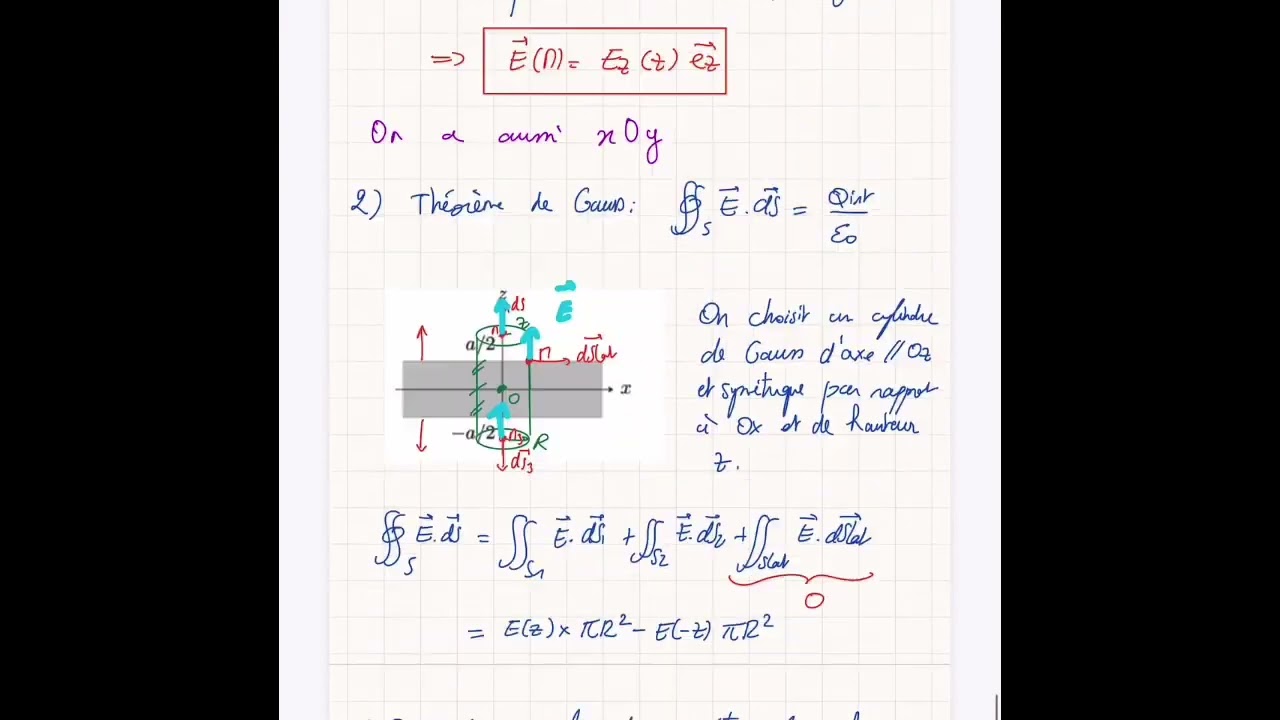 => E⃗(M) = Ez(z) e⃗z
On a aussi xOy
2) Théorème de Gauss: ∯S E⃗.dS⃗ = Qint/ε0
z dS E⃗
a/2 M dSlat
x
O
-a/2 R
dS3
On choisit un cylindre
de Gauss d'axe // Oz
et symétrique par rapport
à Ox et de hauteur
z.
∯S E⃗.dS⃗ = ∬S1 E⃗.dS⃗1 + ∬S2 E⃗.dS⃗2 + ∬Slat E⃗.dS⃗lat
0
= E(z) × πR² - E(-z) πR²